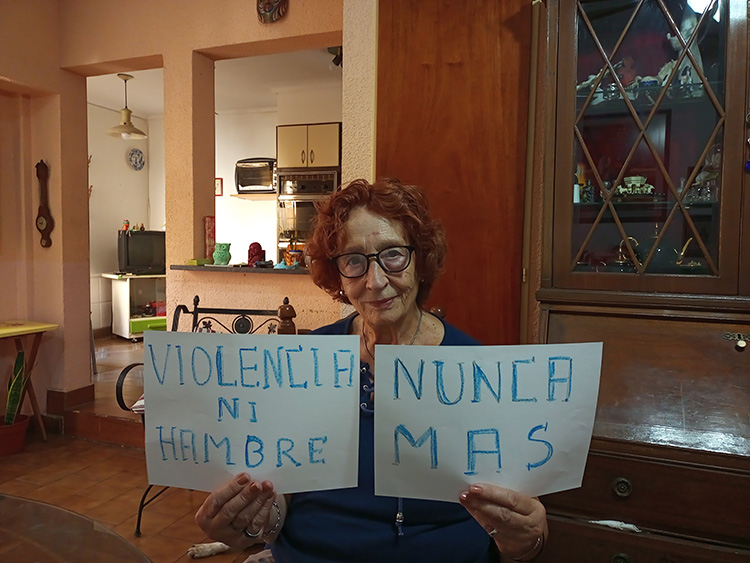 VIOLENCIA
NI
HAMBRE
NUNCA
MAS